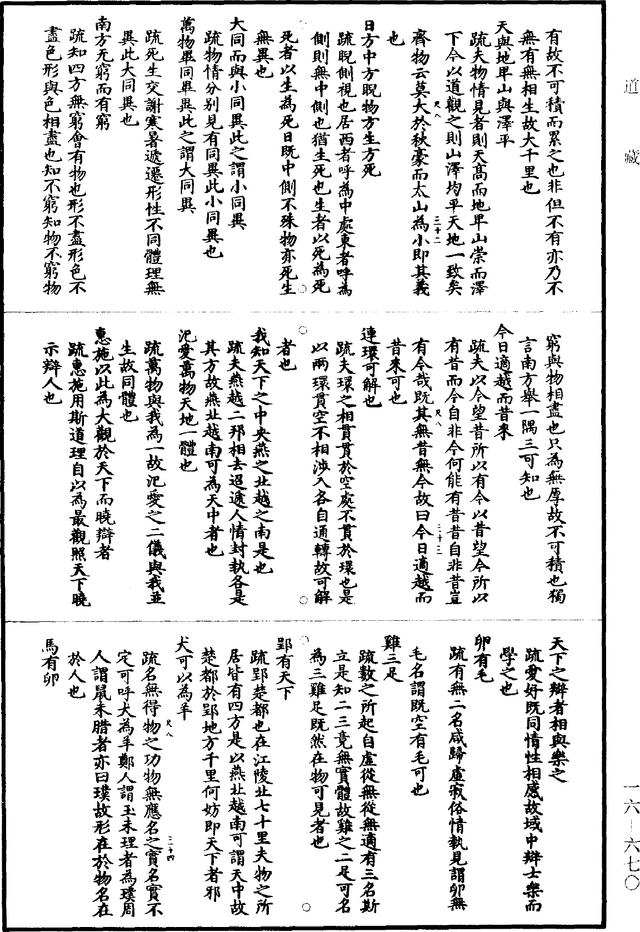 道藏
有故不可積而累之也非但不有亦乃不
無有無相生故大千里也
天與地卑山與澤平
疏夫物情見者則天高而地卑山崇而澤
下今以道觀之則山澤均平天地一致矣
齊物云莫大於秋豪而太山為小即其義
也
日方中方睨物方生方死
疏睨側視也居西者呼為中處東者呼為
側則無中側也猶生死也生者以死為死
死者以生為死日既中側不殊物亦死生
無異也
大同而與小同異此之謂小同異
疏物情分別見有同異此小同異也
萬物畢同畢異此之謂大同異
疏死生交謝寒暑遞遷形性不同體理無
異此大同異也
南方无窮而有窮
疏知四方無窮會有物也形不盡形色不
盡色形與色相盡也知不窮知物不窮物
窮與物相盡也只為無厚故不可積也獨
言南方舉一隅三可知也
今日適越而昔來
疏夫以今望昔所以有今以昔望今所以
有昔而今自非今何能有昔昔自非昔豈
有今哉既其無昔無今故曰今日適越而
昔來可也
連環可解也
疏夫環之相貫貫於空處不貫於環也是
以兩環貫空不相涉入各自通轉故可解
者也
我知天下之中央燕之北越之南是也
疏夫燕越二邦相去迢遞人情封執各是
其方故燕北越南可為天中者也
氾愛萬物天地一體也
疏萬物與我為一故氾愛之二儀與我並
生故同體也
惠施以此為大觀於天下而曉辯者
疏惠施用斯道理自以為最觀照天下曉
示辯人也
天下之辯者相與樂之
疏愛好既同情性相感故域中辯士樂而
學之也
卵有毛
疏有無二名咸歸虛寂俗情執見謂卵無
毛名謂既空有毛可也
雞三足
疏數之所起自虛從無從無適有三名斯
立是知二三竟無實體故雞之二足可名
為三雞足既然在物可見者也
郢有天下
疏郢楚都也在江陵北七十里夫物之所
居皆有四方是以燕北越南可謂天中故
楚都於郢地方千里何妨即天下者邪
犬可以為羊
疏名無得物之功物無應名之實名實不
定可呼犬為羊鄭人謂玉未理者為璞周
人謂鼠未腊者亦曰璞故形在於物名在
於人也
馬有卵
一六—六七〇